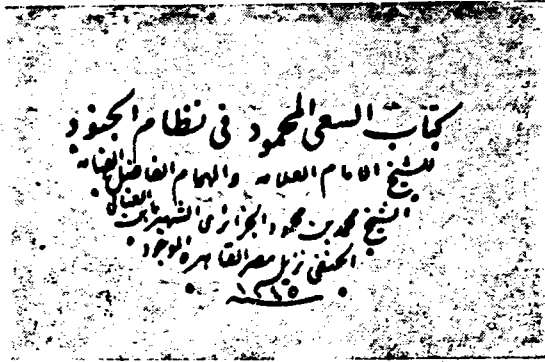 كتاب السعى المحمود فى نظام الجنود
للشيخ الامام العلامه والهمام الفاضل الفهامه
الشيخ محمد بن محمود الجزائرى الشهير بابن العنابى
الحنفى نزيل مصر القاهره الموجود